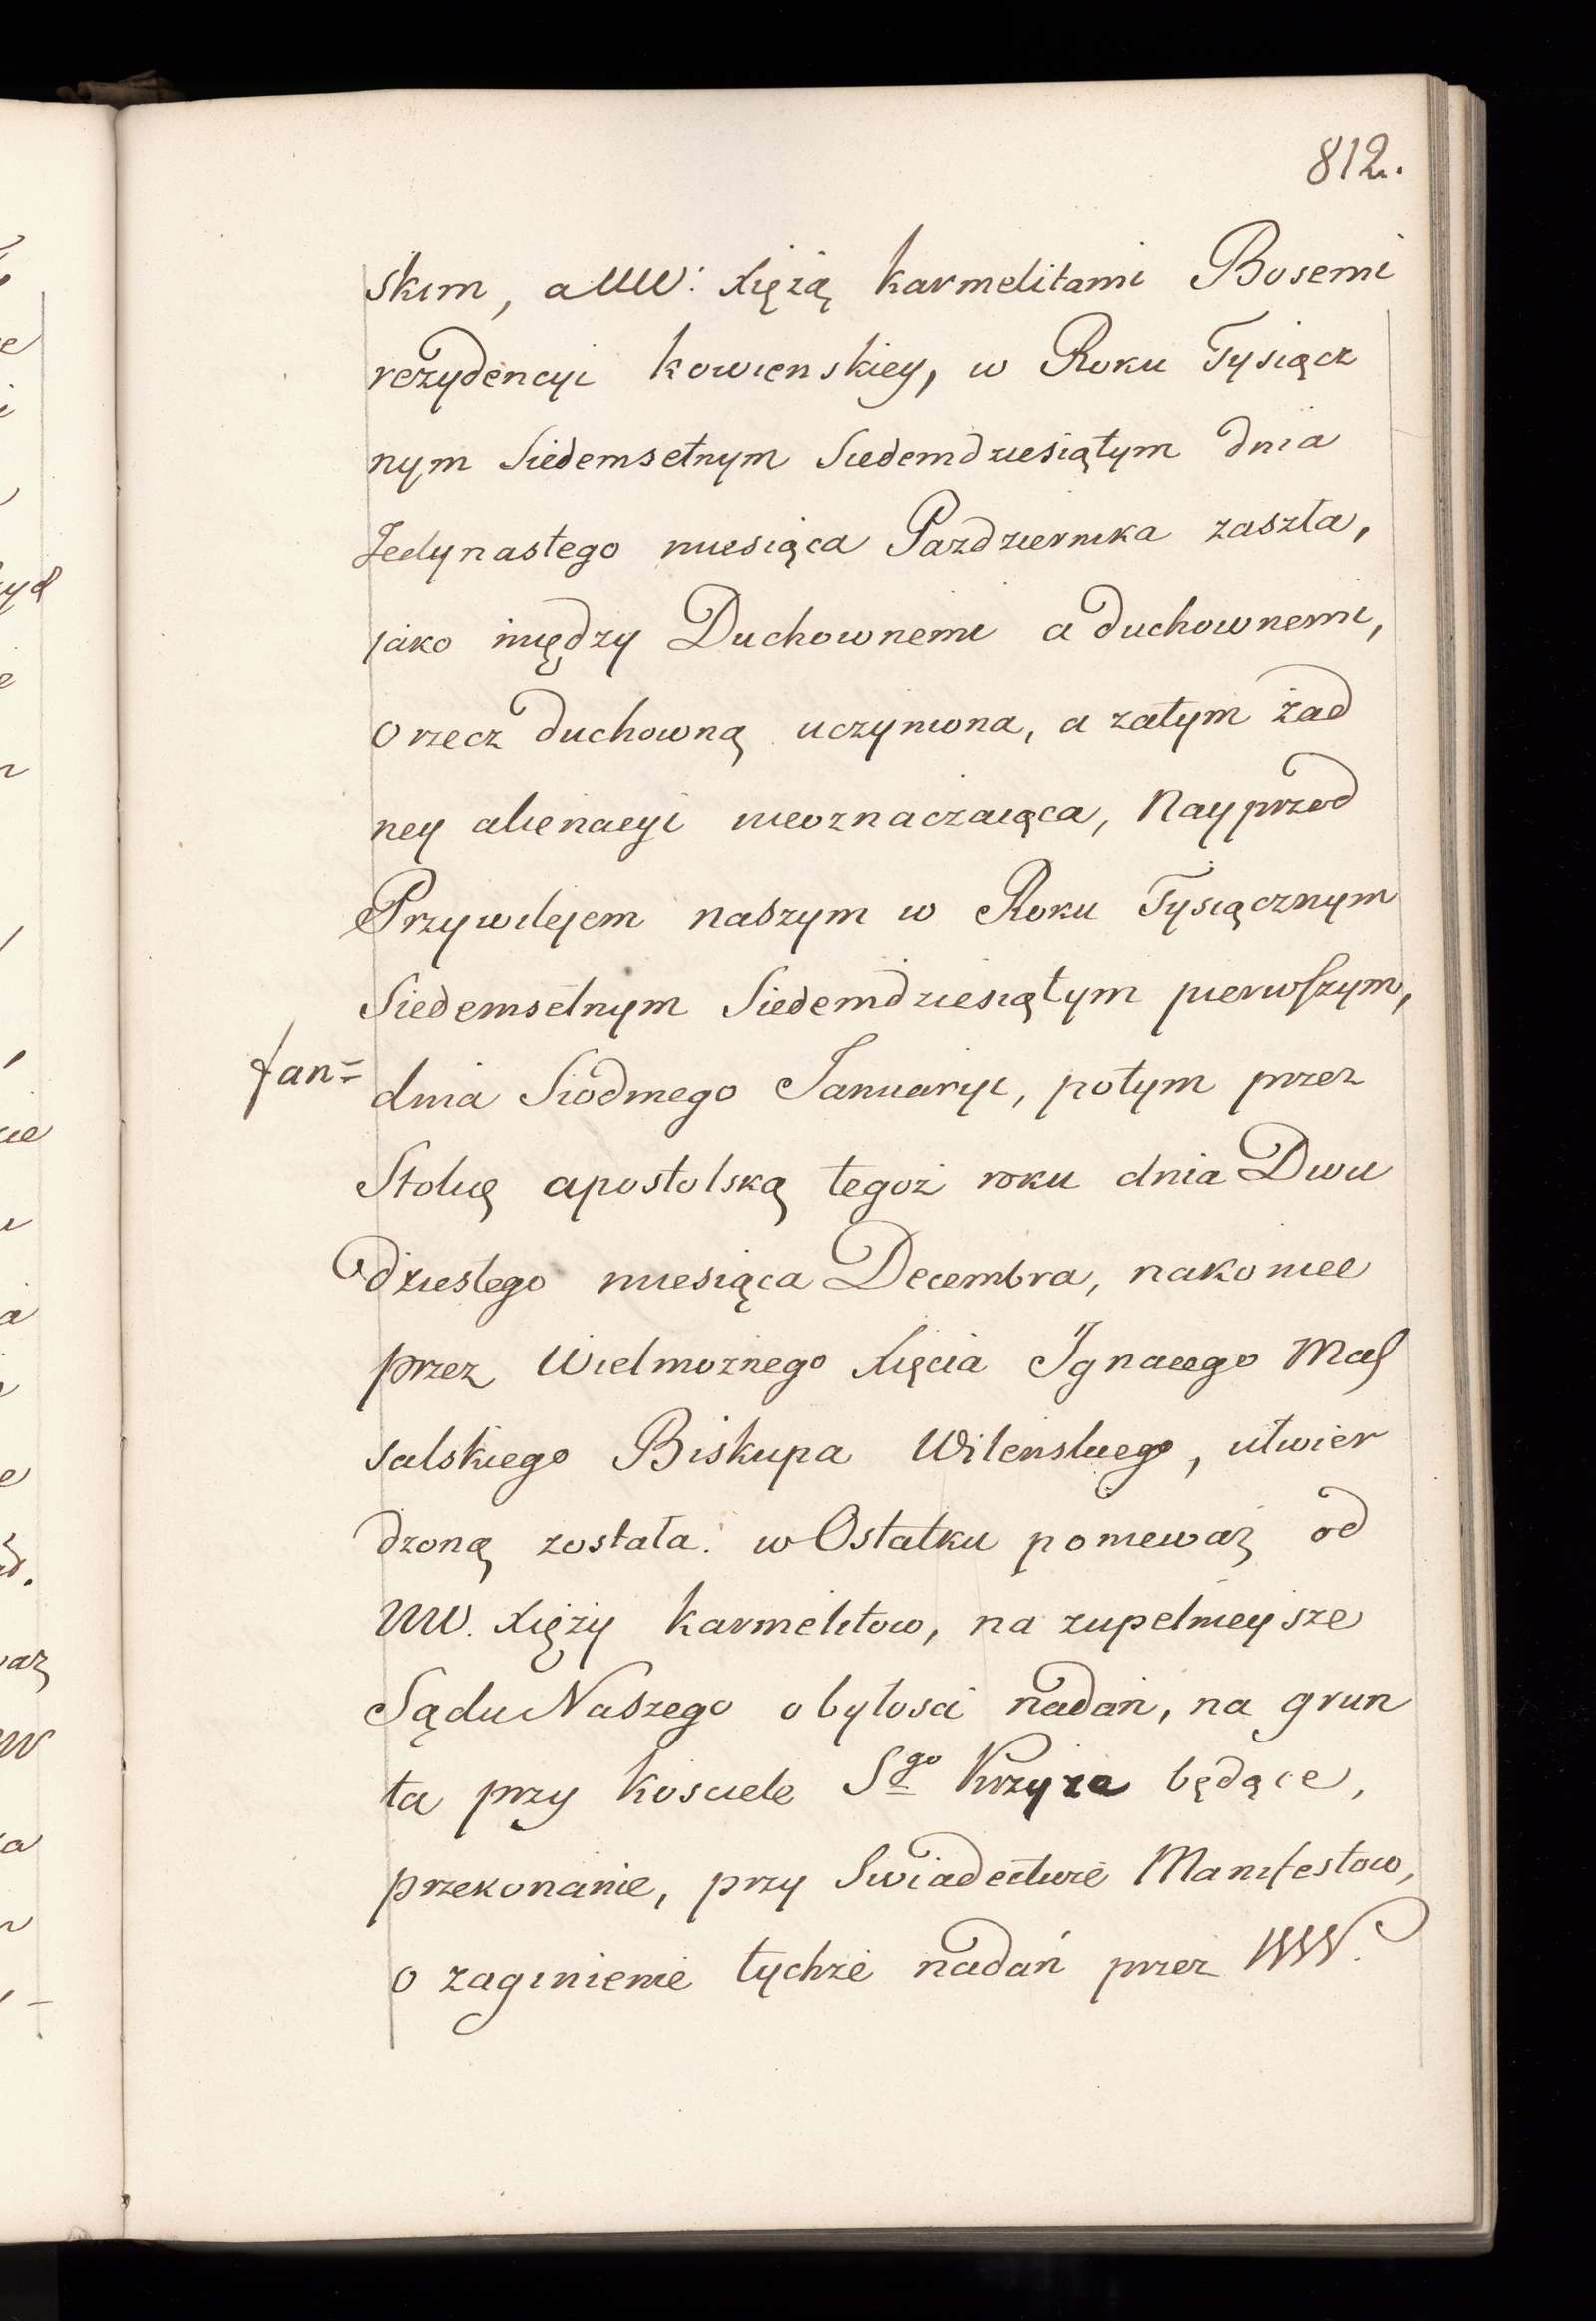 812.
skim, a WW: Xiężą karmelitami Bosemi
rezydencyi kowienskiey, w Roku Tysiącz
nym Siedemsetnym Siedemdziesiątym dnia
Jedynastego miesiąca Pazdziernika zaszła,
jako między Duchownemi a duchownemi,
o rzecz duchowną uczyniona, a zatym żad
ney alienacyi nieoznaczaiąca, Nayprzod
Przywilejem naszym w Roku Tysiącznym
Siedemsetnym Siedemdziesiątym pierwszym,
dnia Siodmego Januaryi, potym przez
Stolicę apostolską tegoż roku dnia Dwu
dziestego miesiąca Decembra, nakoniec
przez Wielmożnego Xięcia Ignacego Mas
salskiego Biskupa Wilenskiego, utwier
dzoną została: w Ostatku poniewaz od
WW. Xięży karmelitow, na zupełnieysze
Sądu Naszego o bytosci nadań, na grun
ta przy kosciele Sgo Krzyża będące,
przekonanie, przy Swiadectwie Manifestow,
o zaginienie tychże nadań przez WW.